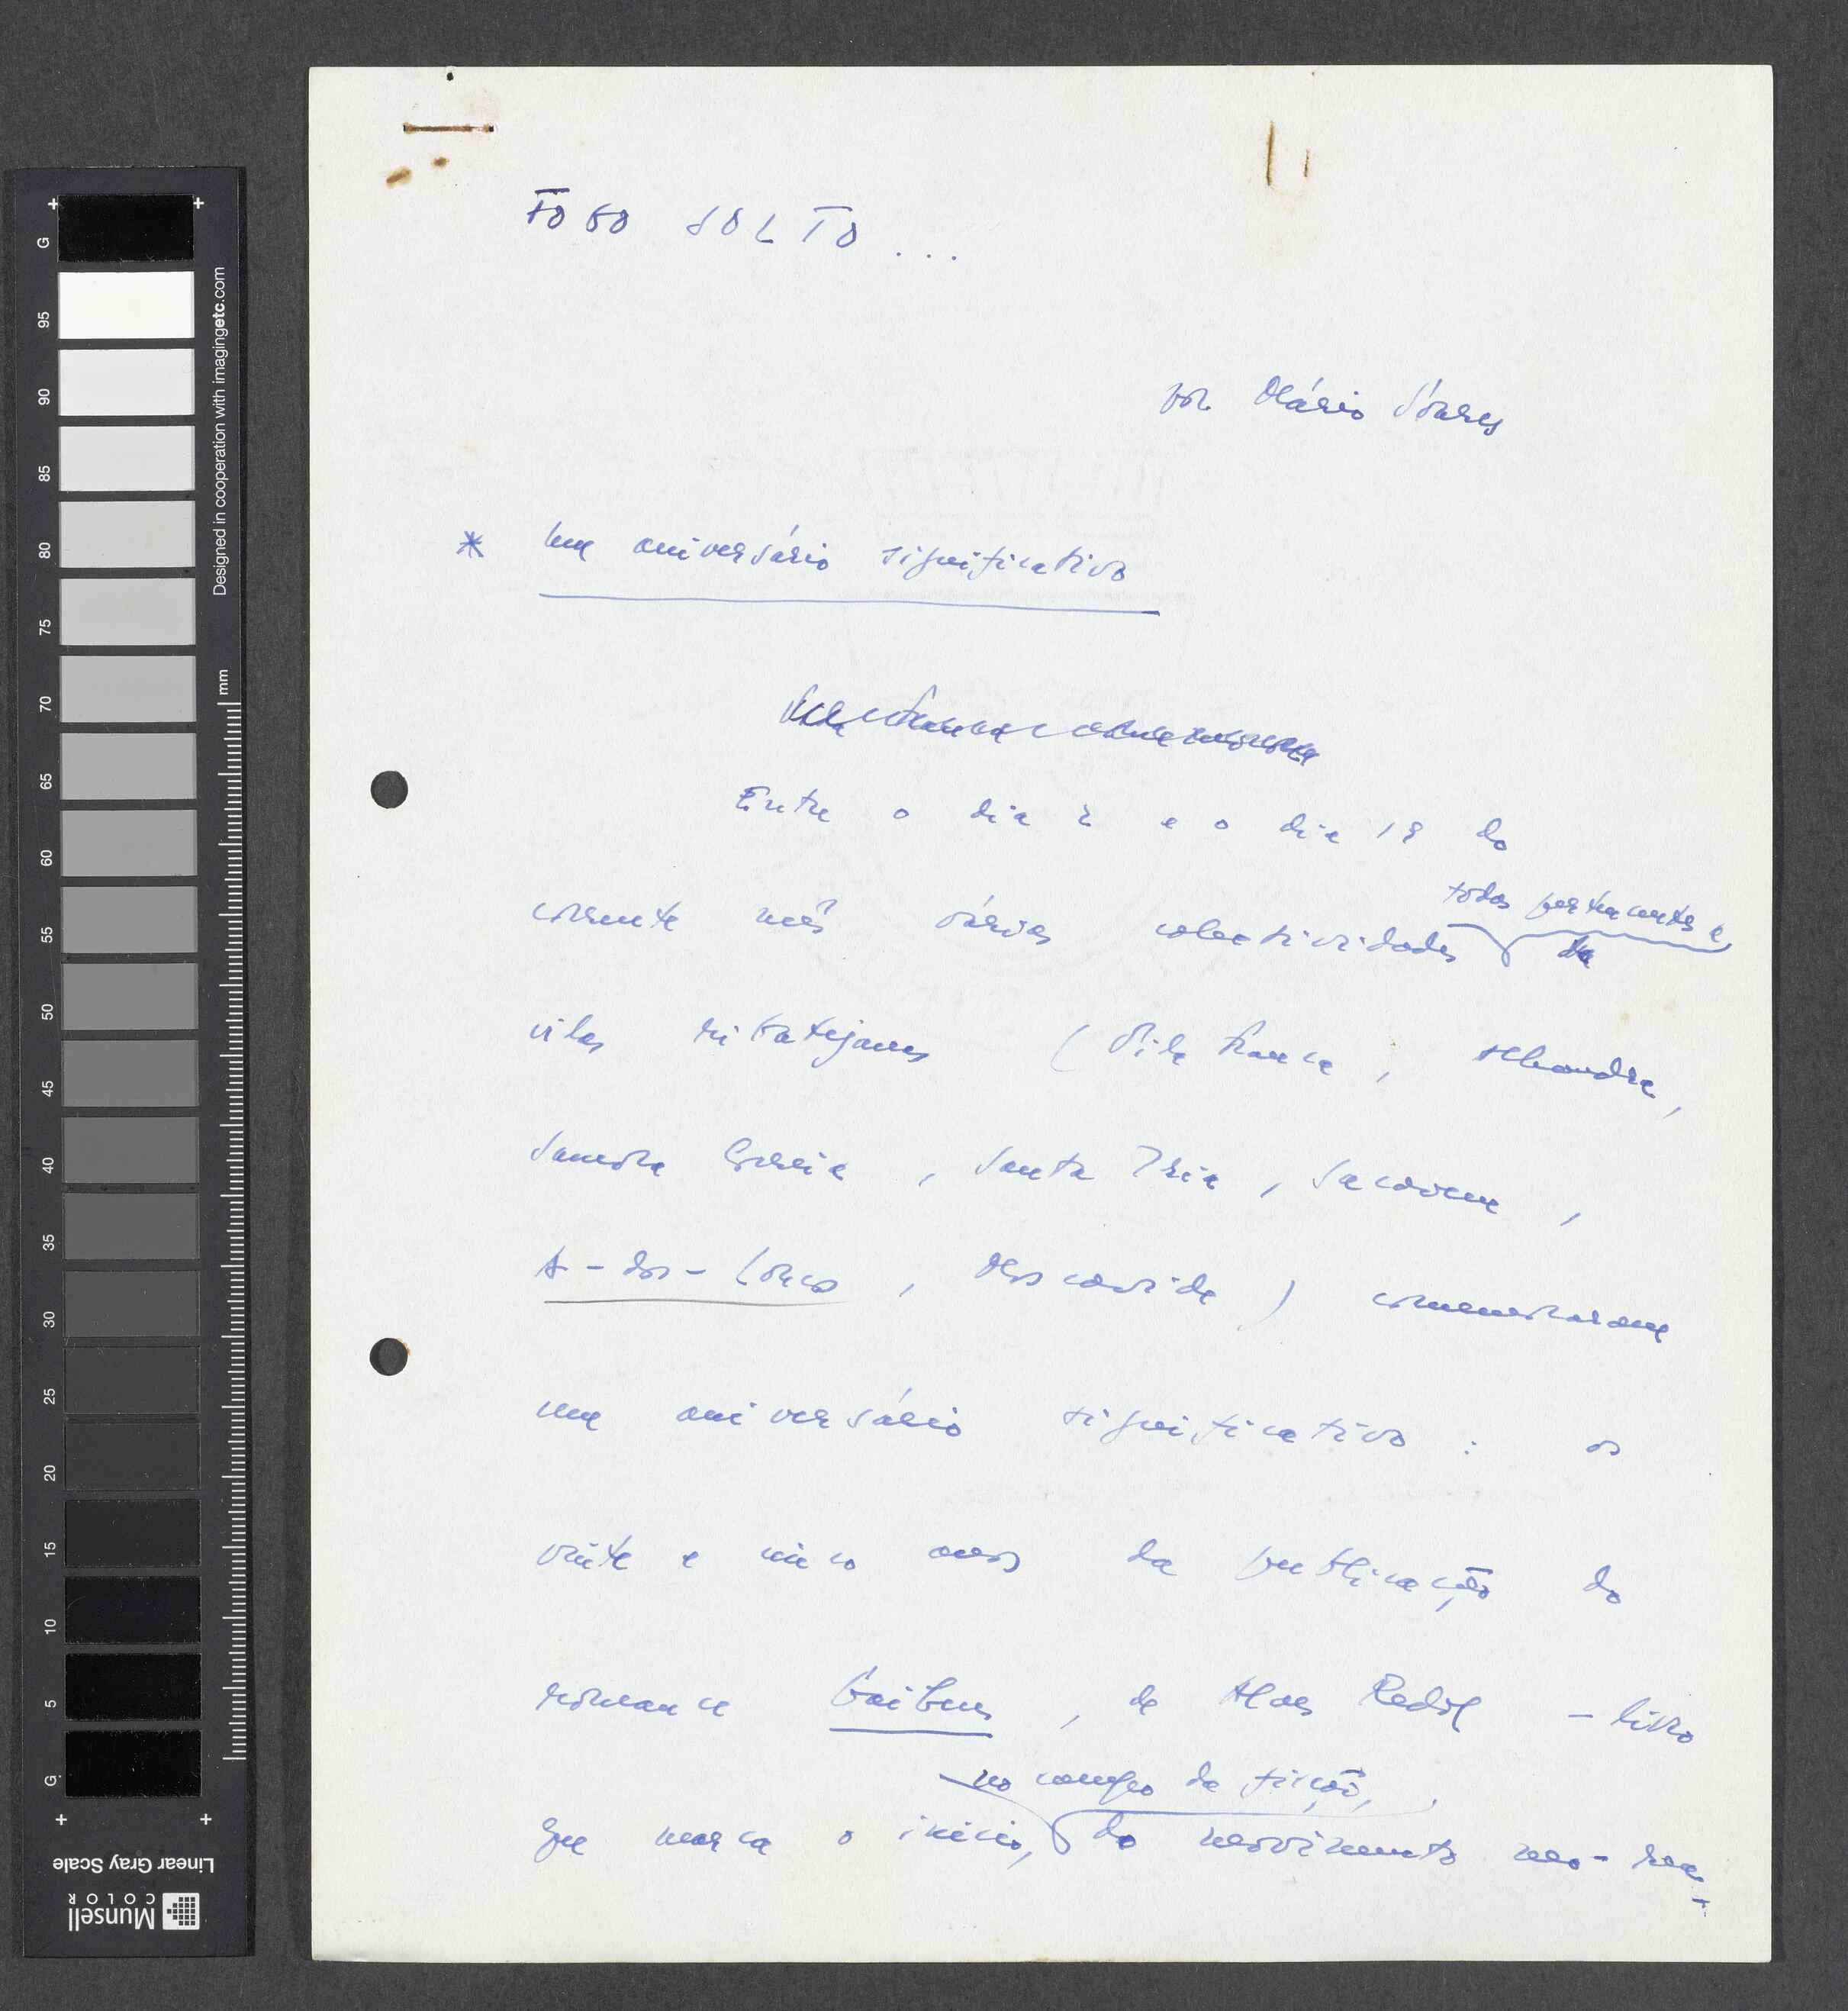 FOGO SOLTO ...
por Mário Soares
* Um aniversário significativo
Entre o dia 2 e o dia 18 do
corrente mês várias colectividades todas pertencentes a da
vilas ribatejanas (Vila Franca, Alhandra,
Samora Correia, Santa Iria, Sacavem,
A-dos-Loucos, Moscavide) comemoraram
um aniversário significativo: os
vinte e cinco anos da publicação do
romance Gaibeus, de Alves Redol - livro
que marca o início, no campo da ficção, do movimento neo-rea-
G
95
90
85
80
75
70
65
60
55
50
45
40
35
30
25
20
15
10
5
G
mm
Designed in cooperation with imagingetc.com
Linear Gray Scale
Munsell
COLOR